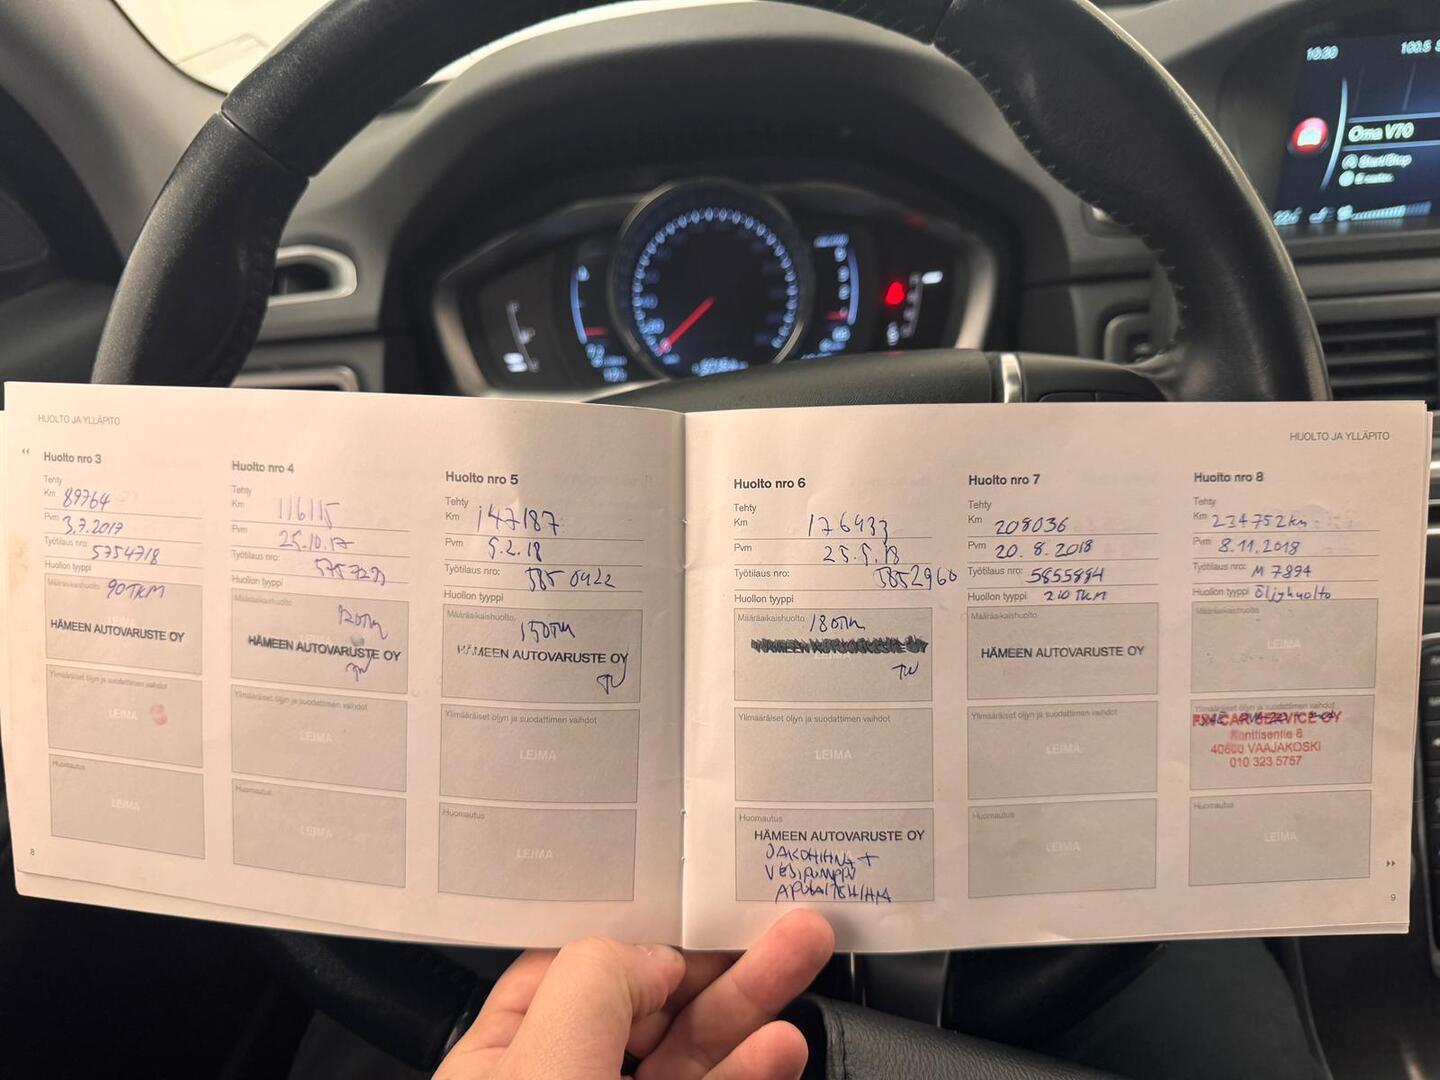 10:20
100.5
Oma V70
Start/Stop
HUOLTO JA YLLÄPITO
Huolto nro 3
Tehty
Km 89764
Pvm 3.7.2017
Työtilaus nro: 5754718
Huollon tyyppi
Määräaikaishuolto 90TKM
HÄMEEN AUTOVARUSTE OY
Ylimääräiset öljyn ja suodattimen vaihdot
LEIMA
Huomautus
LEIMA
8
Huolto nro 4
Tehty
Km 116115
Pvm 25.10.17
Työtilaus nro: 5757293
Huollon tyyppi
Määräaikaishuolto
120TKM
HÄMEEN AUTOVARUSTE OY
Ylimääräiset öljyn ja suodattimen vaihdot
LEIMA
Huomautus
LEIMA
Huolto nro 5
Tehty
Km 147187
Pvm 5.2.18
Työtilaus nro: 5850422
Huollon tyyppi
Määräaikaishuolto
150TKM
HÄMEEN AUTOVARUSTE OY
Ylimääräiset öljyn ja suodattimen vaihdot
LEIMA
Huomautus
LEIMA
HUOLTO JA YLLÄPITO
Huolto nro 6
Tehty
Km 176433
Pvm 25.5.18
Työtilaus nro: 5852960
Huollon tyyppi
Määräaikaishuolto 180TKM
HÄMEEN AUTOVARUSTE OY
Ylimääräiset öljyn ja suodattimen vaihdot
LEIMA
Huomautus
HÄMEEN AUTOVARUSTE OY
JAKOHIHNA +
VESIPUMPPU
APULAITEHIHNA
Huolto nro 7
Tehty
Km 208036
Pvm 20.8.2018
Työtilaus nro: 5855894
Huollon tyyppi 210TKM
Määräaikaishuolto
HÄMEEN AUTOVARUSTE OY
Ylimääräiset öljyn ja suodattimen vaihdot
LEIMA
Huomautus
LEIMA
Huolto nro 8
Tehty
Km 234752km
Pvm 8.11.2018
Työtilaus nro: M7894
Huollon tyyppi Öljyhuolto
Määräaikaishuolto
LEIMA
Ylimääräiset öljyn ja suodattimen vaihdot
CAR SERVICE OY
Konttisentie 8
40800 VAAJAKOSKI
010 323 5757
Huomautus
LEIMA
9